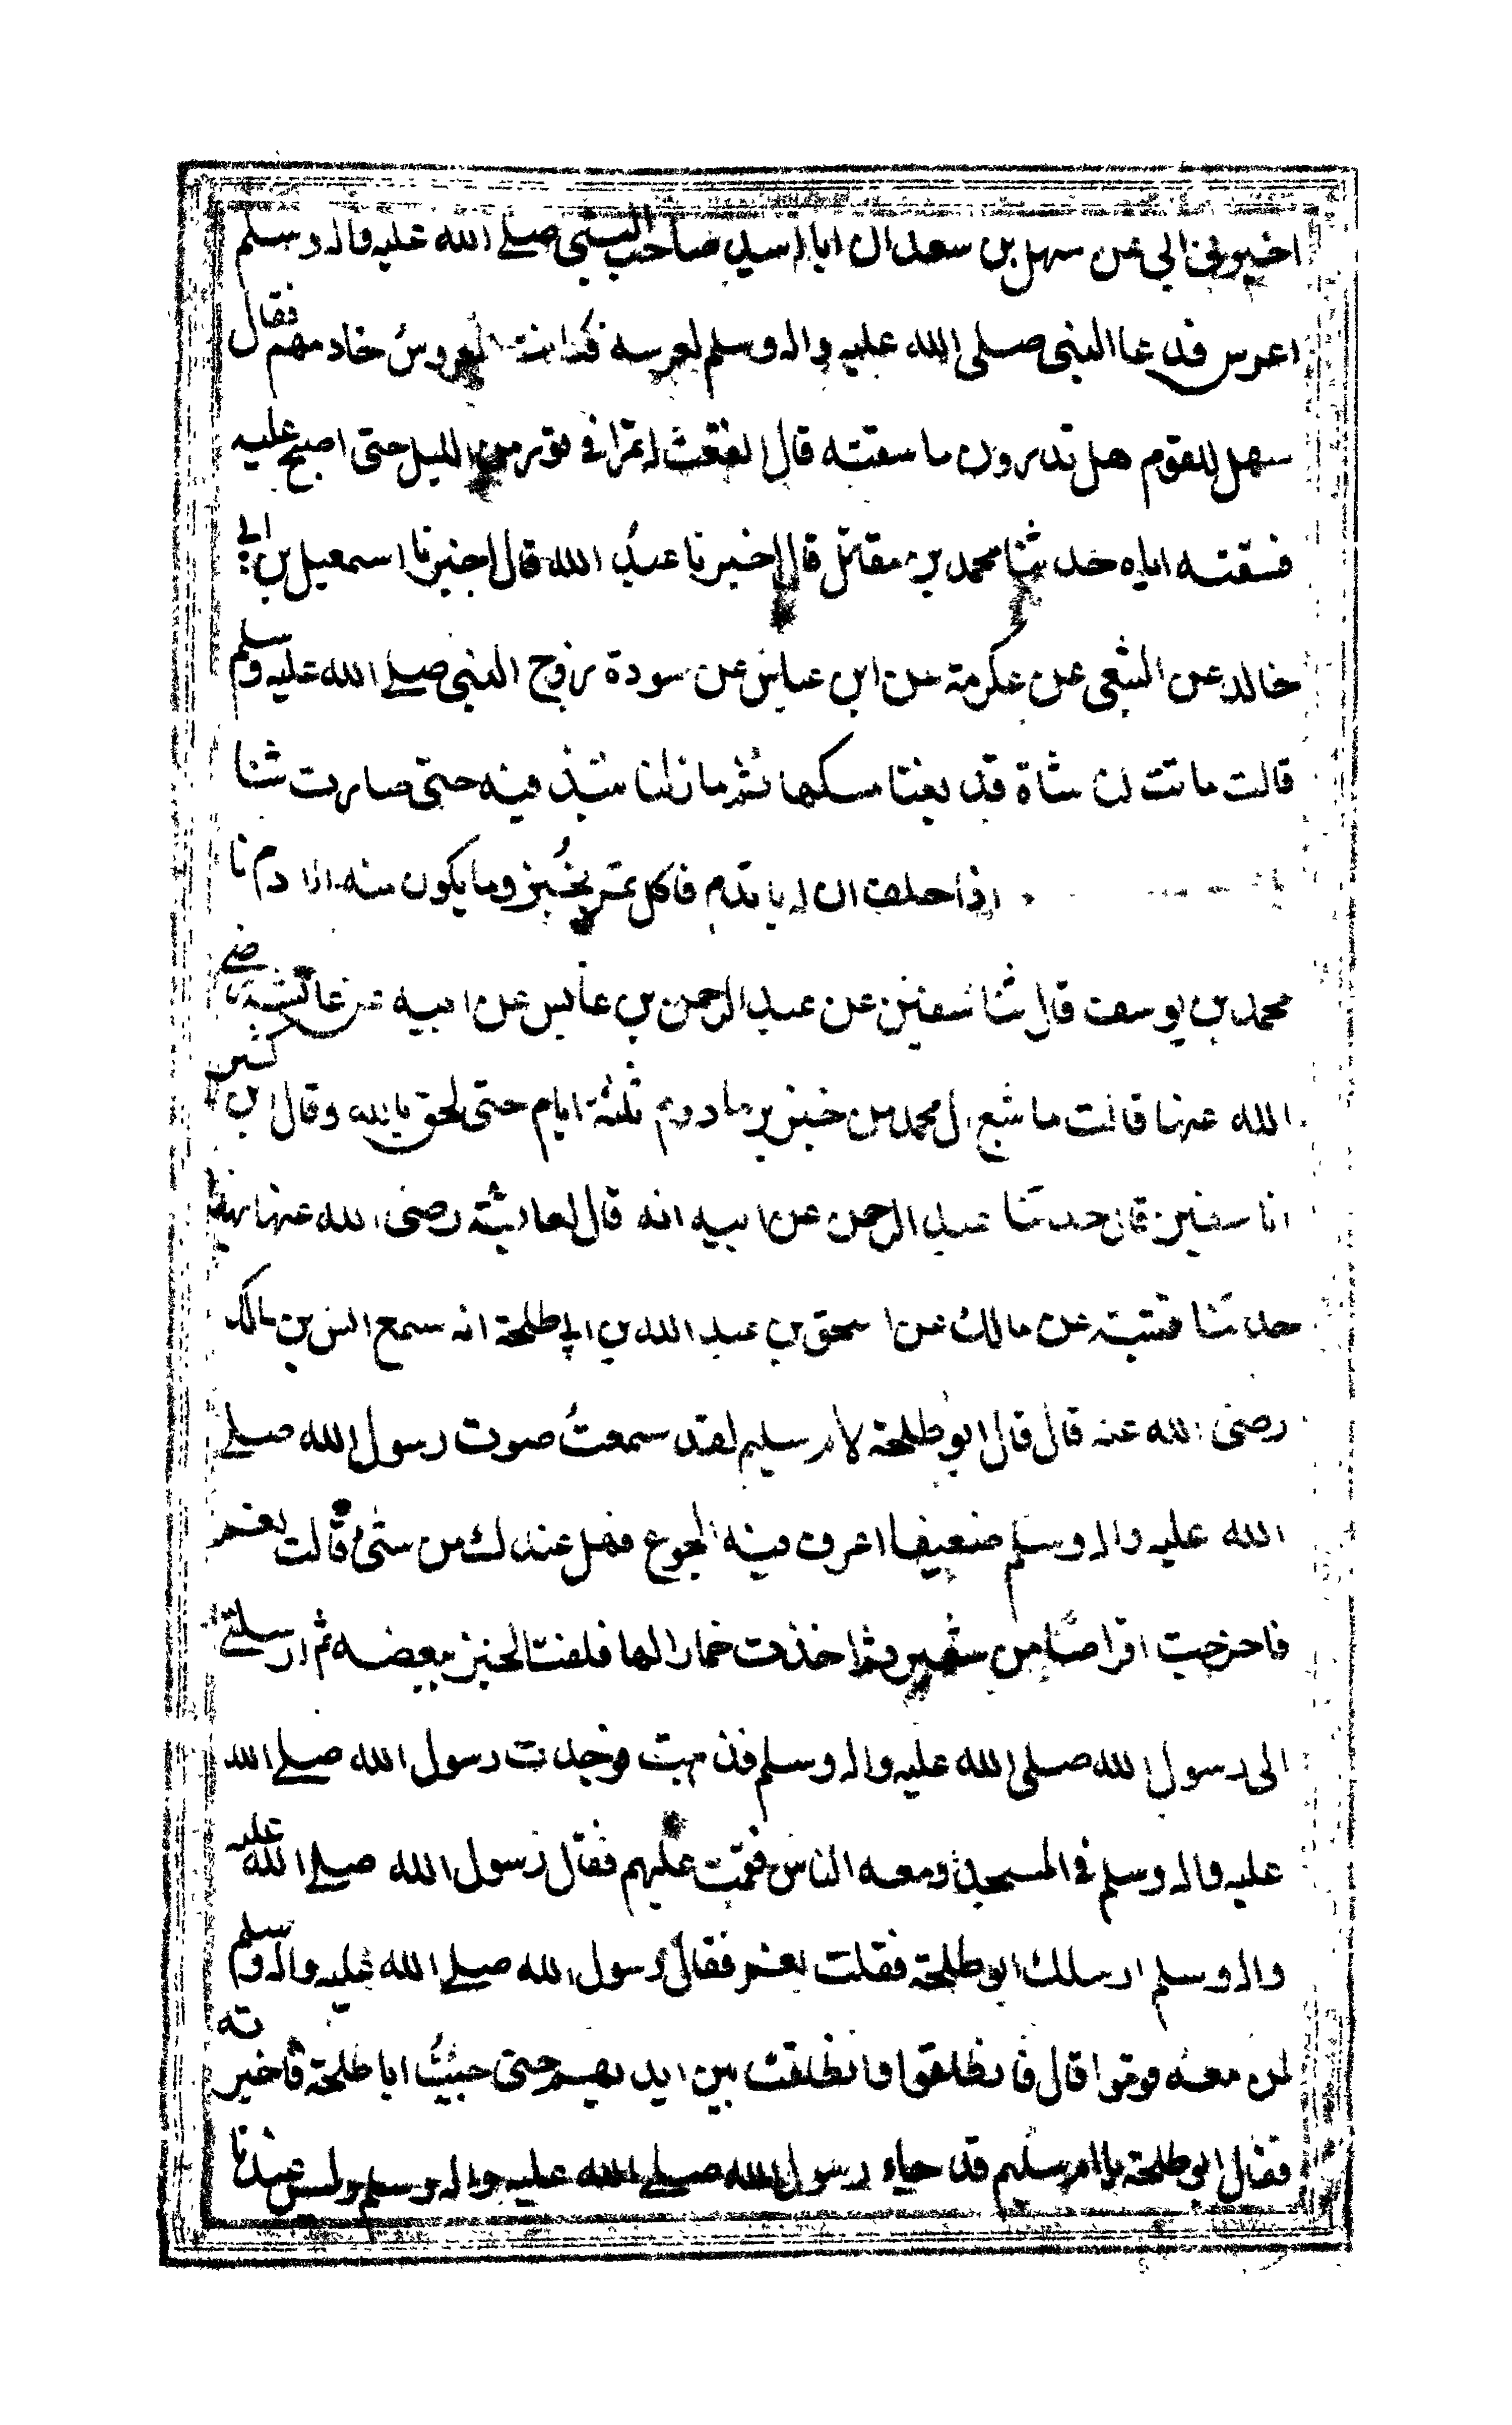 اخبرني ابي عن سهل بن سعد ان ابا اسيد صاحب النبي صلى الله عليه واله وسلم
اعرس فدعا النبي صلى الله عليه واله وسلم لعرسه فكانت العروس خادمهم فقال
سهل للقوم هل تدرون ما سقته قال انقعت له تمرا في تور من الليل حتى اصبح عليه
فسقته اياه حدثنا محمد بن مقاتل قال اخبرنا عبد الله قال اخبرنا اسمعيل بن ابي
خالد عن الشعبي عن عكرمة عن ابن عباس عن سودة زوج النبي صلى الله عليه وسلم
قالت ماتت لنا شاة قد بغنا مسكها ثم ما زلنا ننبذ فيه حتى صارت شنا
اذا حلف ان لا ياتدم فاكل تمر بخبز وما يكون منه ادم نا
محمد بن يوسف قال ثنا سفين عن عبد الرحمن بن عابس عن ابيه عن عائشة رضي
الله عنها قالت ما شبع ال محمد من خبز بر مادوم ثلثة ايام حتى لحق بالله وقال ابن كثير
انا سفين قال حدثنا عبد الرحمن عن ابيه انه قال لعائشة رضى الله عنها بهذا
حدثنا قتيبة عن مالك عن اسحق بن عبد الله بن ابي طلحة انه سمع انس بن مالك
رضى الله عنه قال قال ابو طلحة لام سليم لقد سمعت صوت رسول الله صلى
الله عليه واله وسلم ضعيفا اعرف فيه الجوع فهل عندك من شئ قالت نعم
فاخرجت اقراصا من شعير ثم اخذت خمارا لها فلفت الخبز ببعضه ثم ارسلتني
الى رسول الله صلى الله عليه واله وسلم فذهبت فوجدت رسول الله صلى الله
عليه واله وسلم في المسجد ومعه الناس فقمت عليهم فقال رسول الله صلى الله عليه
واله وسلم ارسلك ابو طلحة فقلت نعم فقال رسول الله صلى الله عليه واله وسلم
لمن معه قوموا قال فانطلقوا وانطلقت بين ايديهم حتى جئت ابا طلحة فاخبرته
فقال ابو طلحة يا ام سليم قد جاء رسول الله صلى الله عليه واله وسلم وليس عندنا